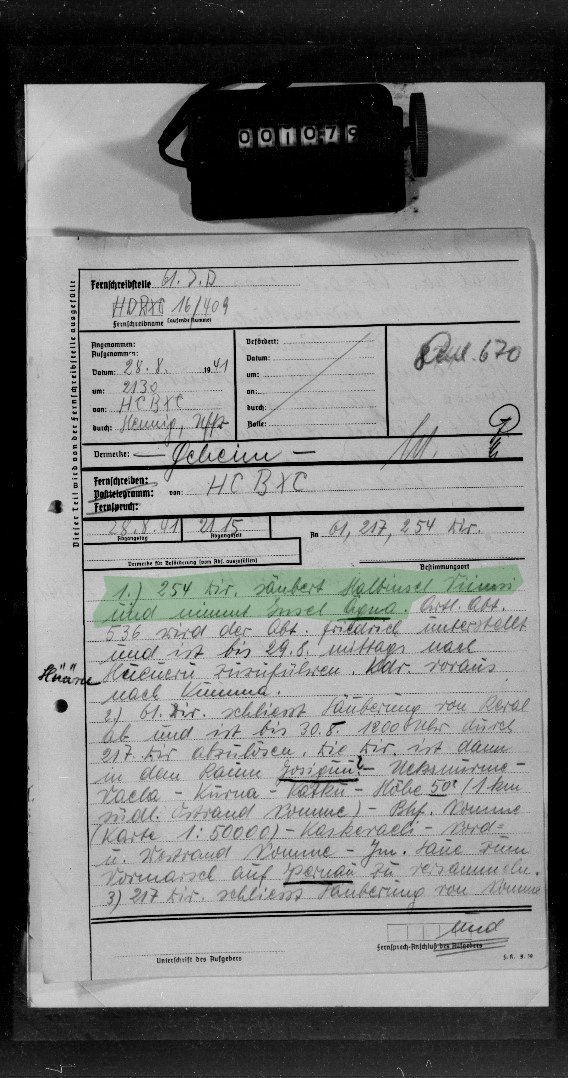 001079
Dieser Teil wird von der Fernschreibstelle ausgefüllt
Fernschreibstelle 61. I.D
HDRXC 16/409
Fernschreibname laufende Nummer
Angenommen:
Aufgenommen:
Datum: 28.8. 1941
um: 2130
von: HCBXC
durch: Hennig, Uffz
Befördert:
Datum:
um:
an:
durch:
Rolle:
670
Vermerke: — Geheim —
Fernschreiben:
Posttelegramm: von: HCBXC
Fernspruch:
28.8.41 21 15
Abgangstag Abgangszeit
An 61, 217, 254 Div.
Vermerke für Beförderung (vom Abs. auszufüllen)
Bestimmungsort
1.) 254 Div. säubert Halbinsel Viimsi
und nimmt Insel Agna. Artl. Abt.
536 wird der Abt. Friedrich unterstellt
und ist bis 29.8. mittags nach
Hüüru
zuzuführen. Kdr. voraus
nach
2) 61. Div. schliesst Säuberung von Reval
ab und ist bis 30.8. 1200 Uhr durch
217 Div abzulösen. Die Div. ist dann
in dem Raum
Vaela - Kurna - Katku - Höhe 50 (1 km
südl. Ostrand Nomme) - Bhf. Nomme
(Karte 1:50000) - - Nord-
u. Westrand Nomme - zum
Vormarsch auf Pernau zu versammeln.
3) 217 Div. schliesst Säuberung von Nomme
Unterschrift des Aufgebers
Fernsprech-Anschluß des Aufgebers